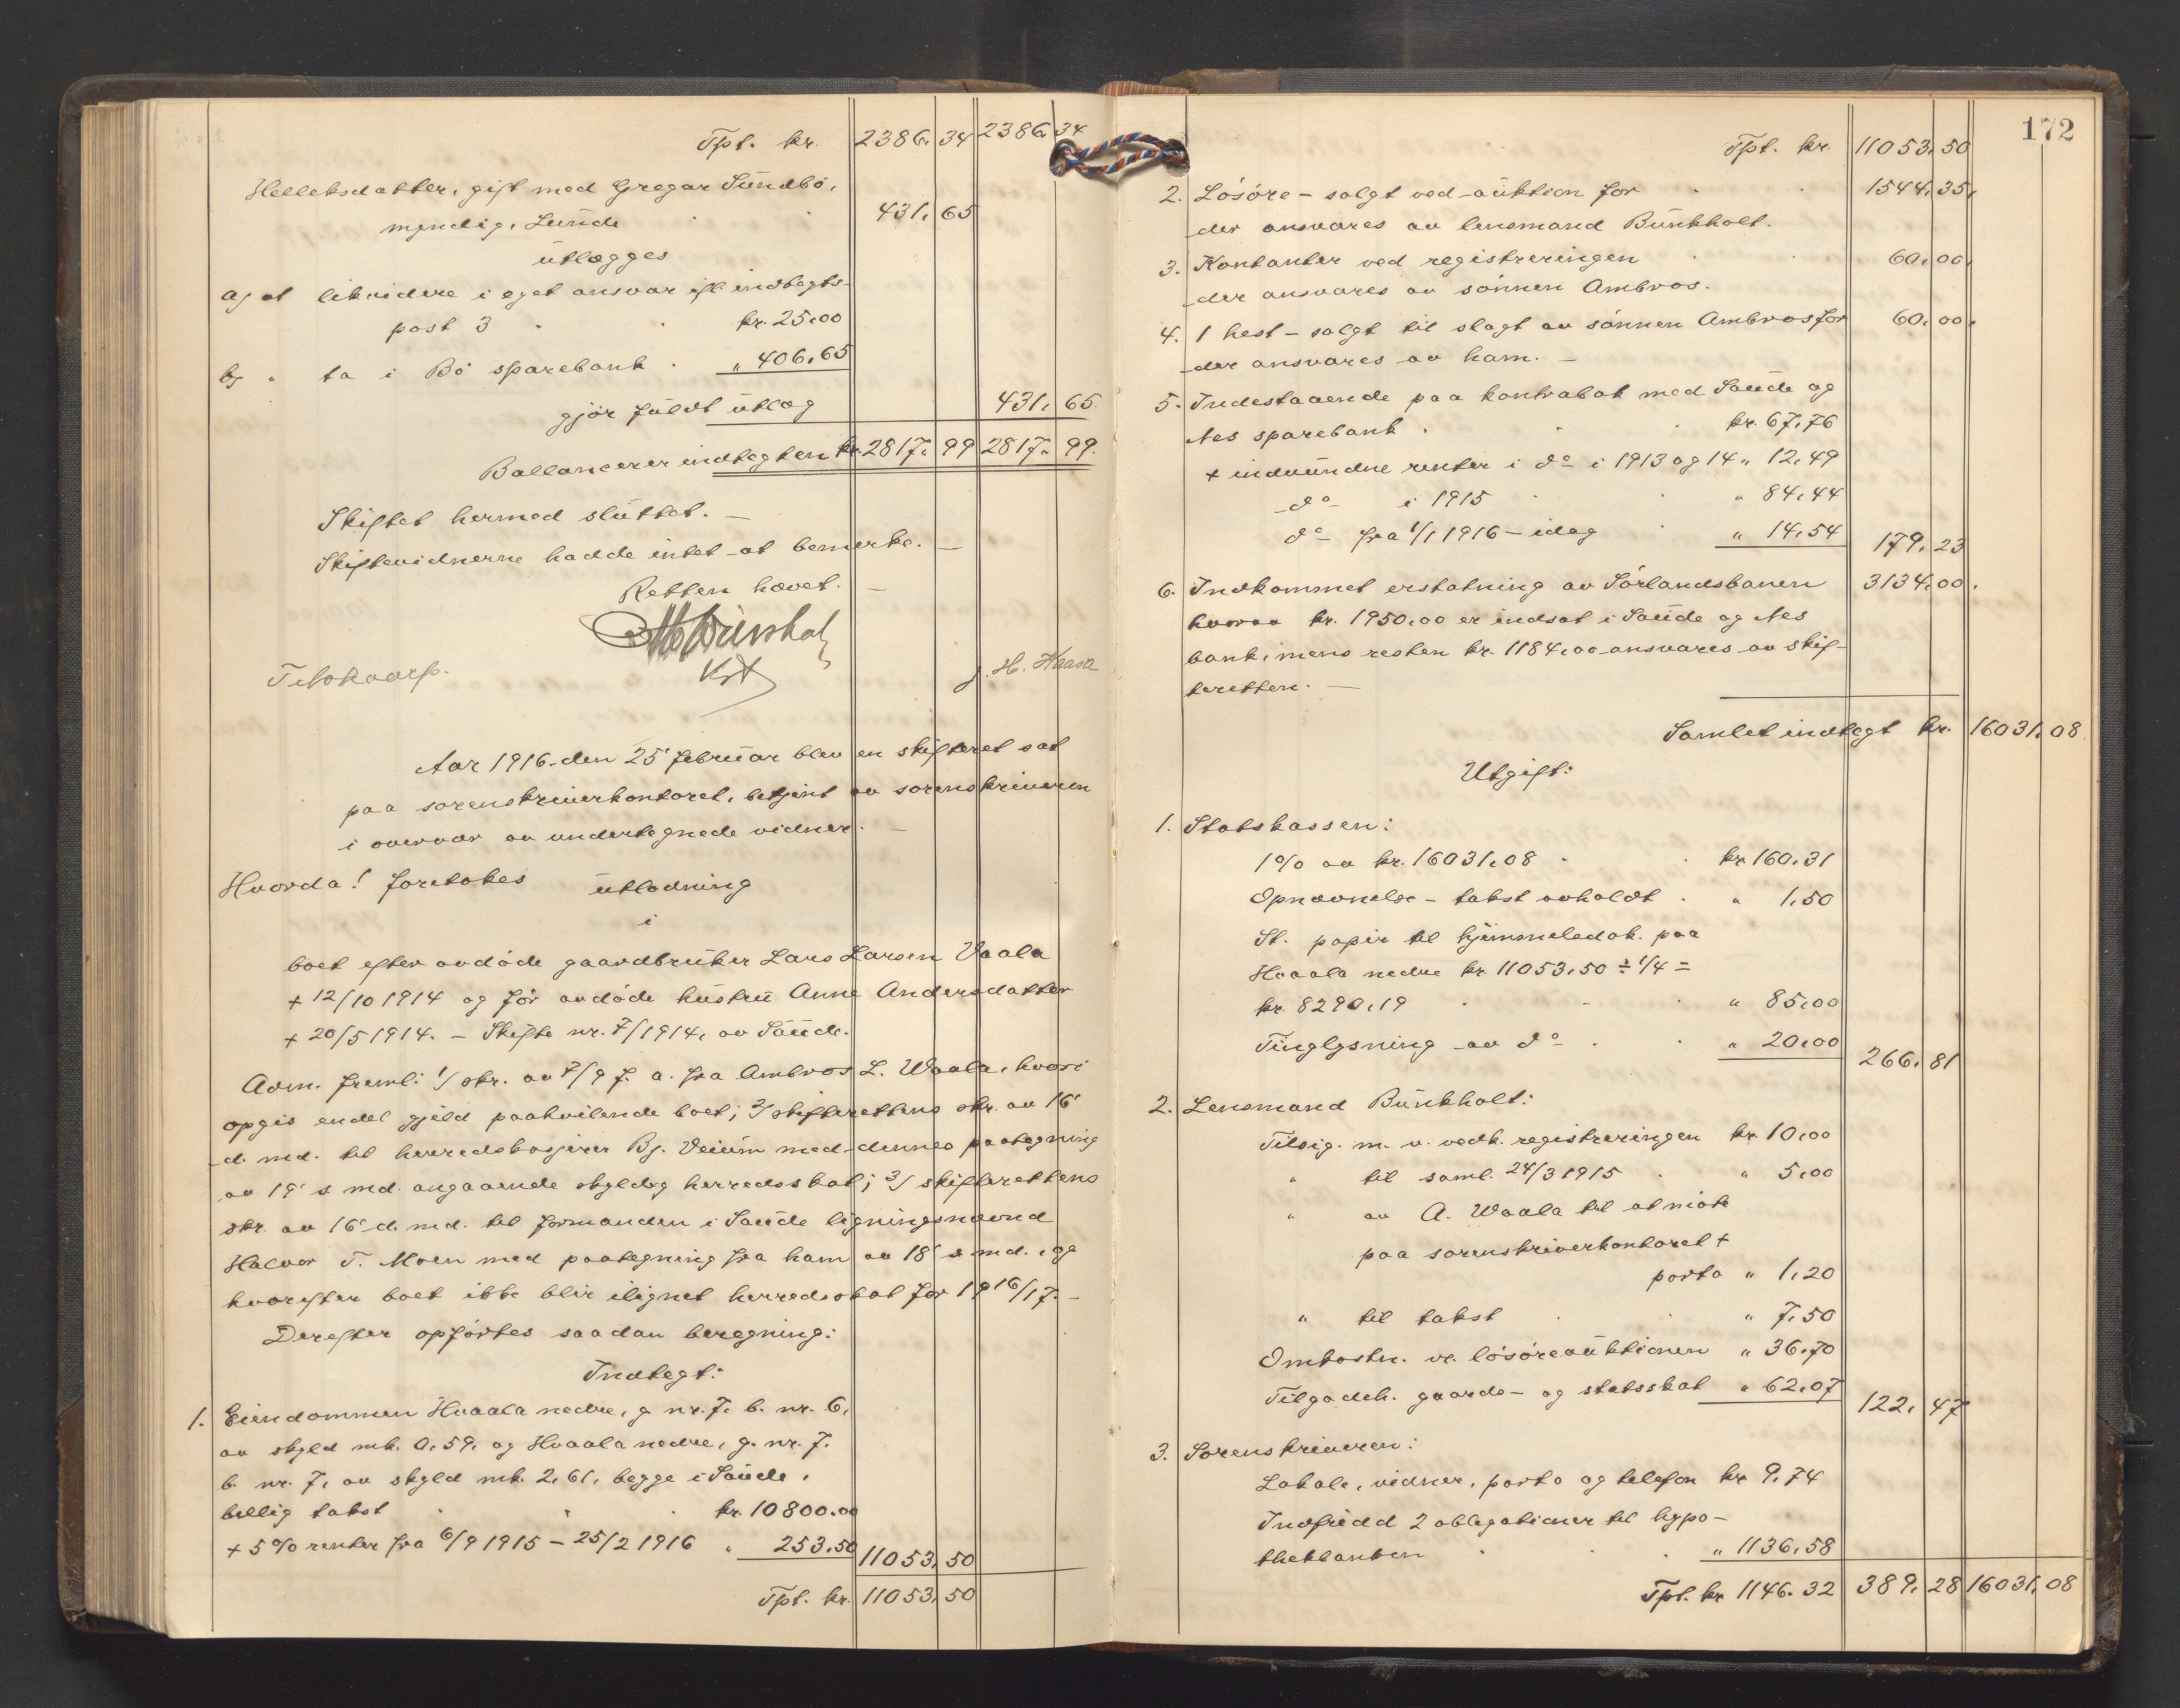 Tpt. kr. 2386. 34 2386. 34
Helleksdatter, gift med Gregar Sundbö,
myndig, Lunde . . 431. 65
utlægges
a) at likvidere i eget ansvar ifl. indtegts-
post 3 . . kr. 25.00
b) " ta i Bö sparebank . " 406.65
gjör fuldt utlæg 431. 65.
Ballancerer indtegten kr. 2817. 99 2817. 99.
Skiftet hermed sluttet. —
Skiftevidnerne hadde intet at bemerke. —
Retten hævet. —
J. H. Haasa
Aar 1916 den 25' februar blev en skifteret sat
paa sorenskriverkontoret, betjent av sorenskriveren
i overvær av undertegnede vidner. —
Hvorda! foretokes utlodning
i
boet efter avdöde gaardbruker Lars Larsen Vaala
+ 12/10 1914 og för avdöde hustru Anne Andersdatter
+ 20/5 1914. — Skifte nr. 7/1914, av Saude.
Adm. freml: 1/ skr. av 7/9 f. a. fra Ambros L. Waala, hvori
opgis endel gjeld paahvilende boet; 2/ skifterettens skr. av 16'
d. md. til herredskasjerer Bj. Veium med dennes paategning
av 19' s md. angaaende skyldig herredsskat; 3/ skifterettens
skr. av 16' d. md. til formanden i Saude ligningsnævnd
Halvor T. Moen med paategning fra ham av 18' s md., og
hvorefter boet ikke blir ilignet herredsskat for 1916/17. —
Derefter opförtes saadan beregning:
Indtegt:
1. Eiendommen Hvaala nedre, g. nr. 7. b. nr. 6,
av skyld mk. 0.59, og Hvaala nedre, g. nr. 7.
b. nr. 7, av skyld mk. 2.61, begge i Saude,
billig takst . . . kr. 10800.00
+ 5 % renter fra 6/9 1915 — 25/2 1916 " 253.50 11053. 50
Tpt. kr. 11053. 50
172
Tpt. kr. 11053. 50
2. Lösöre — solgt ved auktion for . . 1544. 35.
der ansvares av lensmand Bunkholt.
3. Kontanter ved registreringen . . 60. 00.
der ansvares av sönnen Ambros.
4. 1 hest — solgt til slagt av sönnen Ambros for 60. 00.
der ansvares av ham. —
5. Indestaaende paa kontrabok med Saude og
Nes sparebank . . . kr. 67.76
+ indvundne renter i do i 1913 og 14 " 12.49
do i 1915 . . " 84.44
do fra 1/1 1916 — idag . " 14.54 179. 23
6. Indkommet erstatning av Sörlandsbanen 3134. 00.
hvorav kr. 1950.00 er indsat i Saude og Nes
bank, mens resten kr. 1184.00 ansvares av skif-
teretten. —
Samlet indtegt kr. 16031. 08.
Utgift:
1. Statskassen:
1 % av kr. 16031.08 . . kr. 160.31
Opnævnelse — takst avholdt . " 1.50
St. papir til hjemmelsdok. paa
Hvaala nedre kr. 11053.50 ÷ 1/4 =
kr. 8290.19 . . . " 85.00
Tinglysning av do . . " 20.00 266. 81
2. Lensmand Bunkholt:
Tilsig. m. v. vedk. registreringen kr. 10.00
" til saml. 24/3 1915 . " 5.00
" av A. Waala til at möte
paa sorenskriverkontoret +
porto " 1.20
" til takst . . " 7.50
Omkostn. v. lösöreauktionen " 36.70
Tilgodeh. gaards- og statsskat " 62.07 122. 47
3. Sorenskriveren:
Lokale, vidner, porto og telefon kr. 9.74
Indfridd 2 obligationer til hypo-
thekbanken . . " 1136.58
Tpt. kr. 1146.32 389. 28 16031. 08